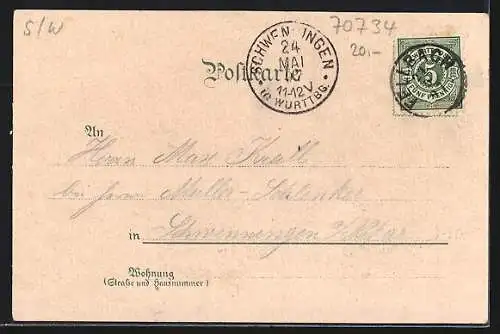 S/W
70734
20,-
SCHWENNINGEN
24
MAI
11-12V
(A. WÜRTTBG.
Postkarte
FELLBACH
5
FÜNF PFENNIG
An
Herrn Max Krall
bei Herrn Müller-Schlenker
in Schwenningen
Wohnung
(Straße und Hausnummer)